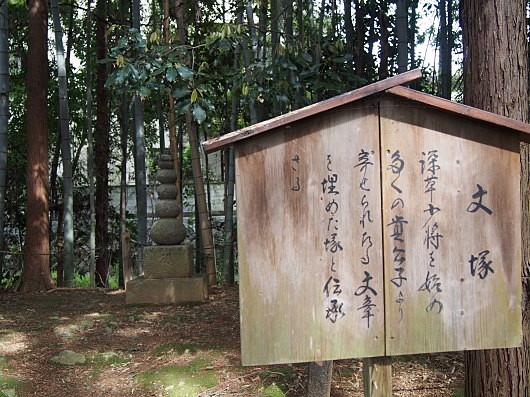 文塚
深草少将を始め
多くの貴公子より
寄せられたる文章
を埋めた塚と伝承
さる